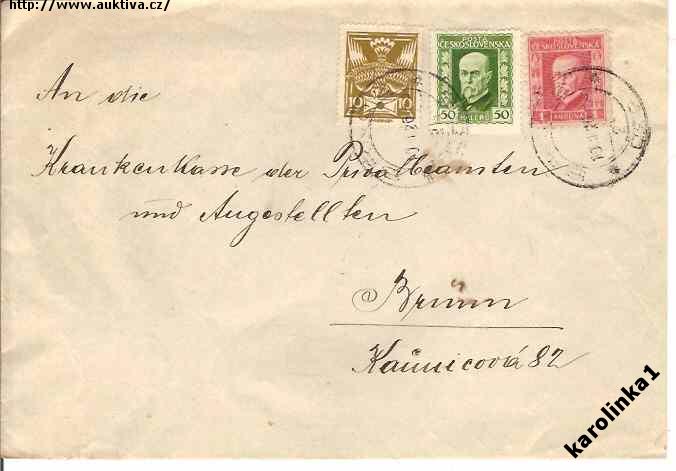 http://www.auktiva.cz/
10 10
POŠTA
ČESKOSLOVENSKÁ
50 HALÉŘŮ 50
POŠTA
ČESKOSLOVENSKÁ
1 KORUNA 1
An die
Krankenkasse der Privatbeamten
und Angestellten
Brünn
Kaunicová 82
karolinka1